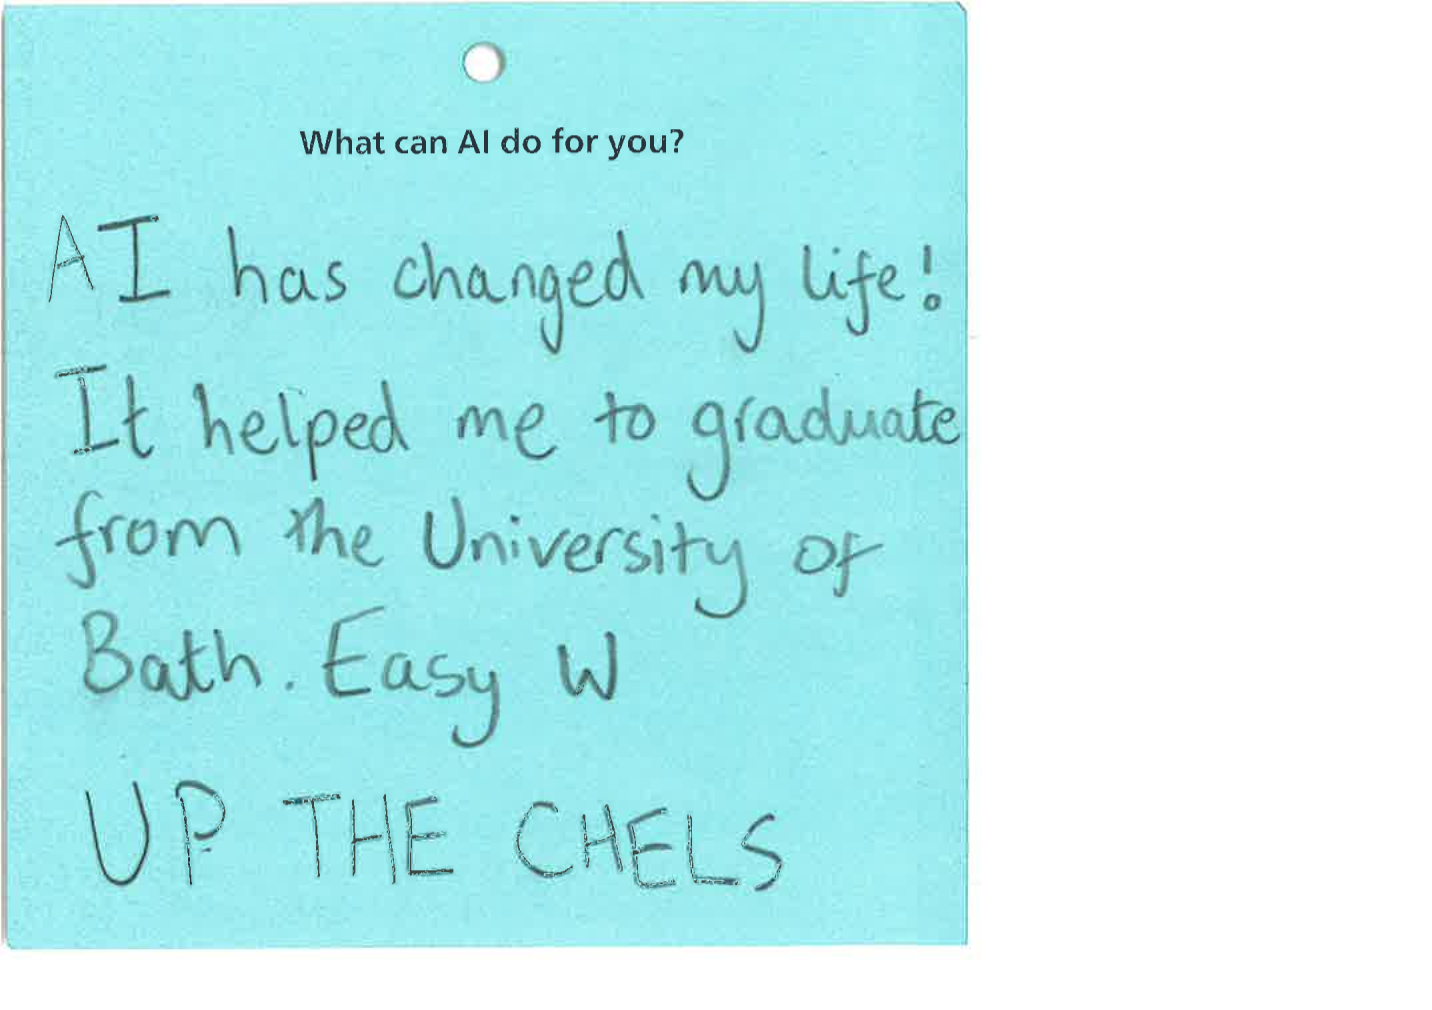 What can AI do for you?
AI has changed my life!
It helped me to graduate
from the University of
Bath. Easy W
UP THE CHELS